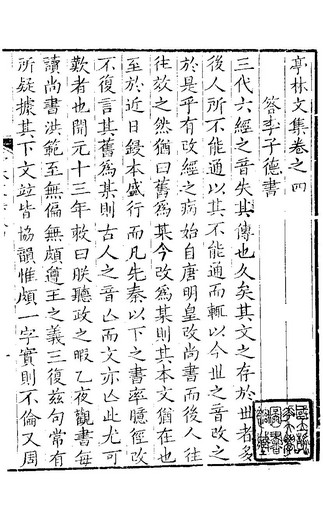 亭林文集卷之四
答李子德書
三代六經之音失其傳也久矣其文之存於世者多
後人所不能通以其不能通而輒以今世之音改之
於是乎有改經之病始自唐明皇改尚書而後人往
往效之然猶曰舊為某今改為某則其本文猶在也
至於近日鋟本盛行而凡先秦以下之書率臆徑改
不復言其舊為某則古人之音亡而文亦亡此尤可
歎者也開元十三年敕曰朕聽政之暇乙夜觀書每
讀尚書洪範至無偏無頗遵王之義三復茲句常有
所疑據其下文竝皆協韻惟頗一字實則不倫又周